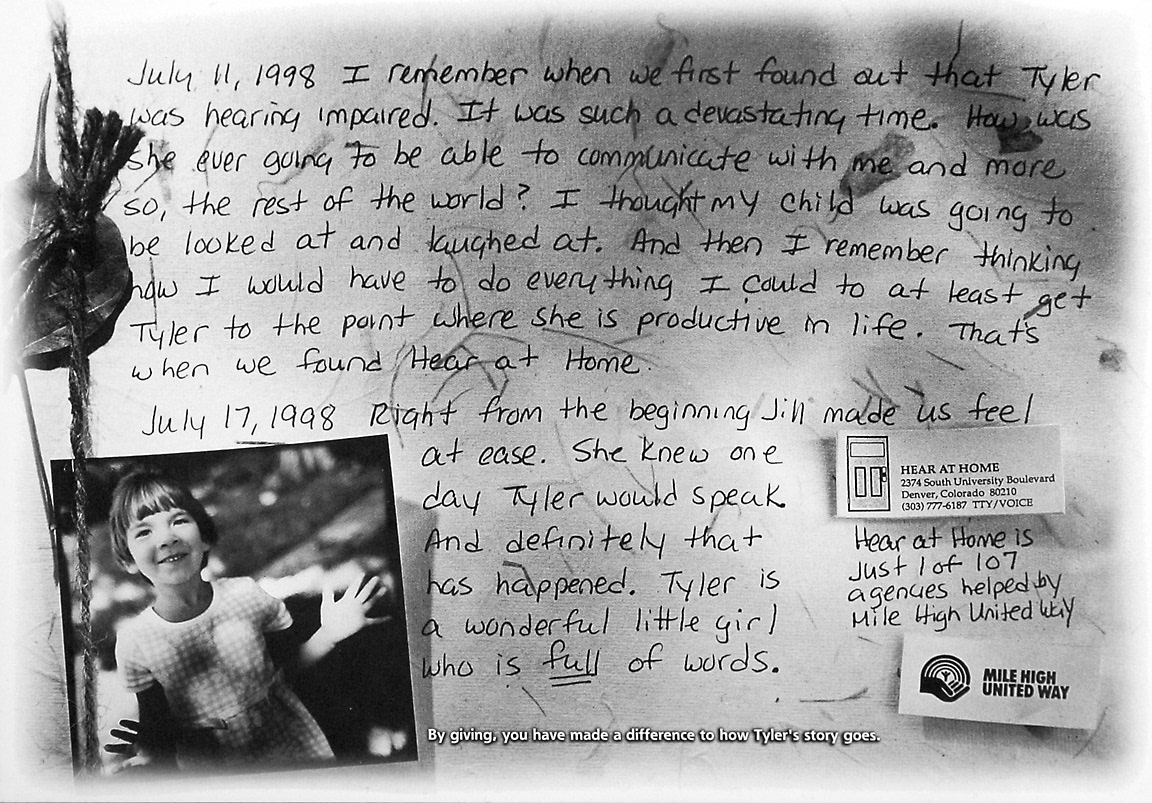 July 11, 1998 I remember when we first found out that Tyler
was hearing impaired. It was such a devastating time. How was
she ever going to be able to communicate with me and more
so, the rest of the world? I thought my child was going to
be looked at and laughed at. And then I remember thinking
how I would have to do everything I could to at least get
Tyler to the point where she is productive in life. That's
when we found Hear at Home.
July 17, 1998 Right from the beginning Jill made us feel
at ease. She knew one
day Tyler would speak.
And definitely that
has happened. Tyler is
a wonderful little girl
who is full of words.
HEAR AT HOME
2374 South University Boulevard
Denver, Colorado 80210
(303) 777-6187 TTY/VOICE
Hear at Home is
Just 1 of 107
agencies helped by
Mile High United Way
MILE HIGH
UNITED WAY
By giving, you have made a difference to how Tyler's story goes.